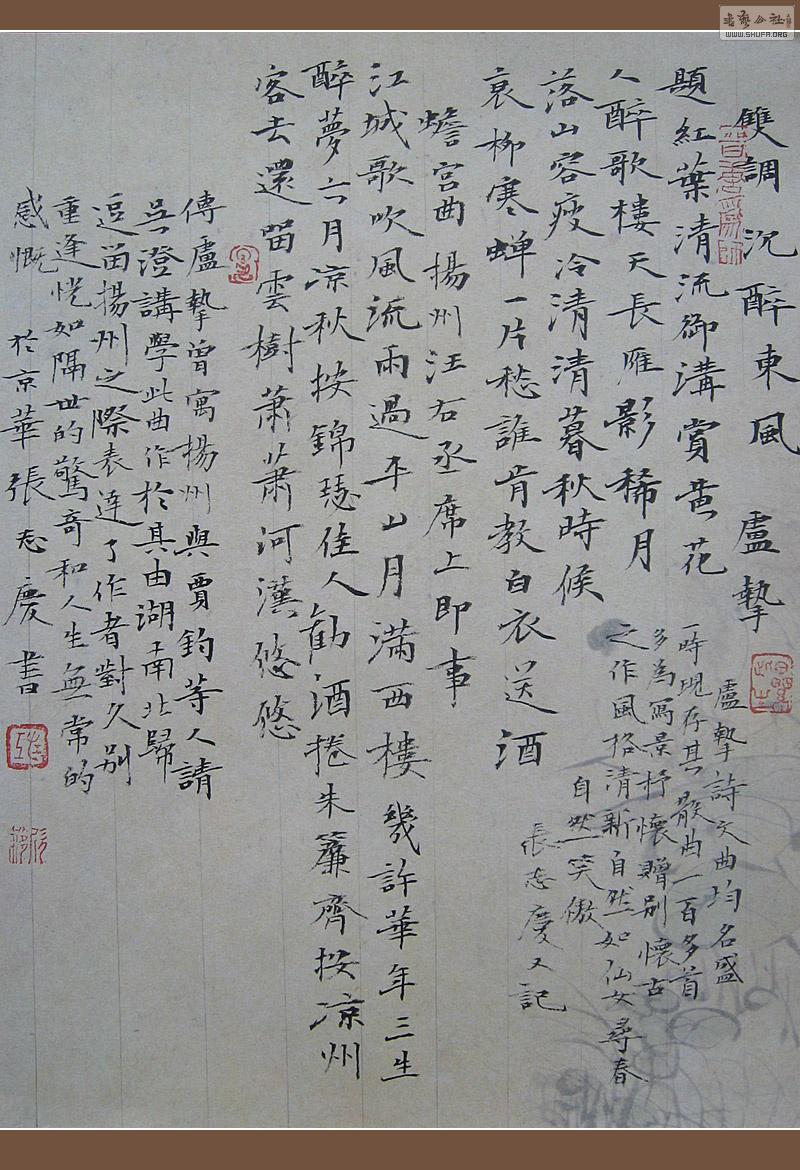 雙調沉醉東風 盧摯
題紅葉清流御溝賞黃花
人醉歌樓天長雁影稀月
落山容瘦冷清清暮秋時候
衰柳寒蟬一片愁誰肯教白衣送酒
盧摯詩文曲均名盛
一時現存其散曲一百多首
多為寫景抒懷贈別懷古
之作風格清新自然如仙女尋春
自然笑傲
張志慶又記
蟾宮曲揚州汪右丞席上即事
江城歌吹風流雨過平山月滿西樓幾許華年三生
醉夢六月凉秋按錦瑟佳人勸酒捲朱簾齊按凉州
客去還留雲樹蕭蕭河漢悠悠
傳盧摯曾寓揚州與賈鈞等人請
吳澄講學此曲作於其由湖南北歸
逗留揚州之際表達了作者對久別
重逢恍如隔世的驚奇和人生無常的
感慨 於京華張志慶書
書藝公社
WWW.SHUFA.ORG